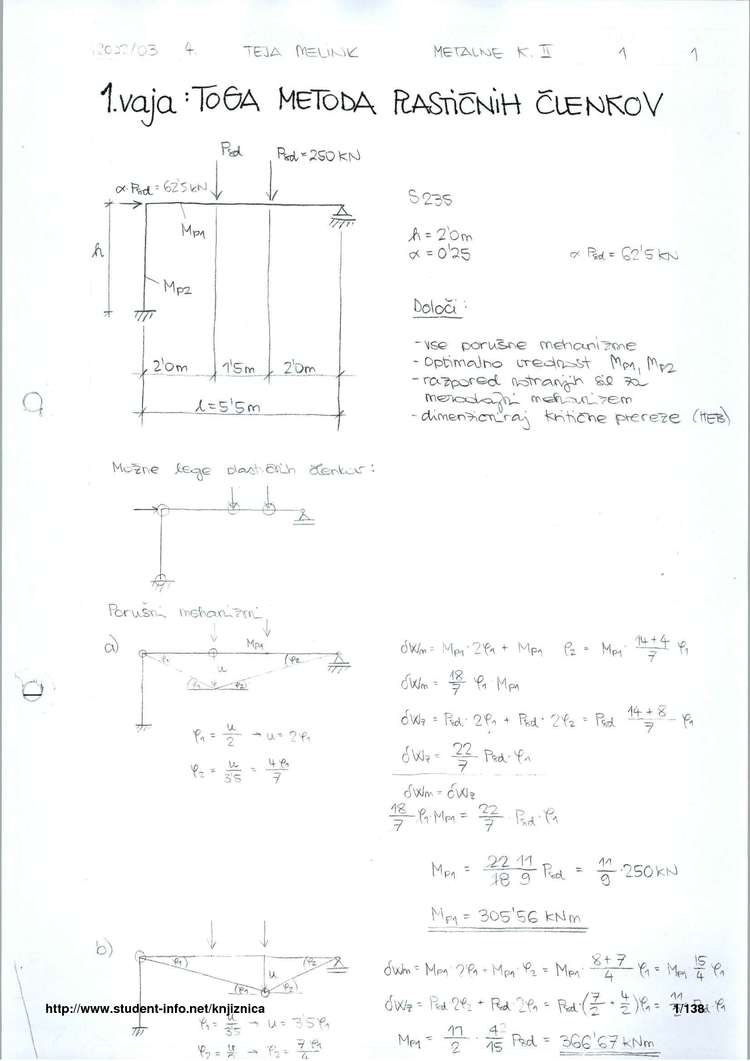 2022/03 4. TEJA MELINK METALNE K. II 1 1
1. vaja: TOGA METODA PLASTIČNIH ČLENKOV
Psd
Psd = 250 KN
α·Psd = 62'5 kN
Mp1
h
Mp2
2'0m 1'5m 2'0m
l = 5'5m
S 235
h = 2'0m
α = 0'25 α Psd = 62'5 kN
Določi:
- vse porušne mehanizme
- optimalno vrednost Mp1, Mp2
- razpored notranjih sil za
merodajni mehanizem
- dimenzioniraj kritične prereze (HEB)
Možne lege plastičnih členkov:
Porušni mehanizmi
a)
Mp1
φ1 u φ2
φ1 φ2
φ1 = u/2 → u = 2φ1
φ2 = u/3'5 = 4φ1/7
δWm = Mp1·2φ1 + Mp1 φ2 = Mp1· (14+4)/7 φ1
δWm = 18/7 φ1 Mp1
δWz = Psd·2φ1 + Psd·2φ2 = Psd (14+8)/7 φ1
δWz = 22/7 Psd·φ1
δWm = δWz
18/7 φ1·Mp1 = 22/7 · Psd·φ1
Mp1 = 22/18 11/9 Psd = 11/9 · 250 KN
Mp1 = 305'56 kNm
b)
φ1 φ2
u
φ2
φ1 = u/3'5 → u = 3'5φ1
φ2 = u/2 → φ2 = 7φ1/4
δWm = Mp1·2φ1 + Mp1·φ2 = Mp1· (8+7)/4 φ1 = Mp1 15/4 φ1
δWz = Psd 2φ2 + Psd 2φ1 = Psd·(7/2 + 4/2)φ1 = 11/2 Psd φ1
Mp1 = 11/2 · 4/15 Psd = 366'67 kNm
http://www.student-info.net/knjiznica
1/138